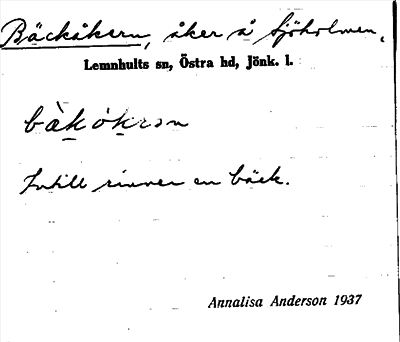 Bäckåkern, åker å Sjöholmen,
Lemnhults sn, Östra hd, Jönk. l.
bàkåkrən
Intill rinner en bäck.
Annalisa Anderson 1937